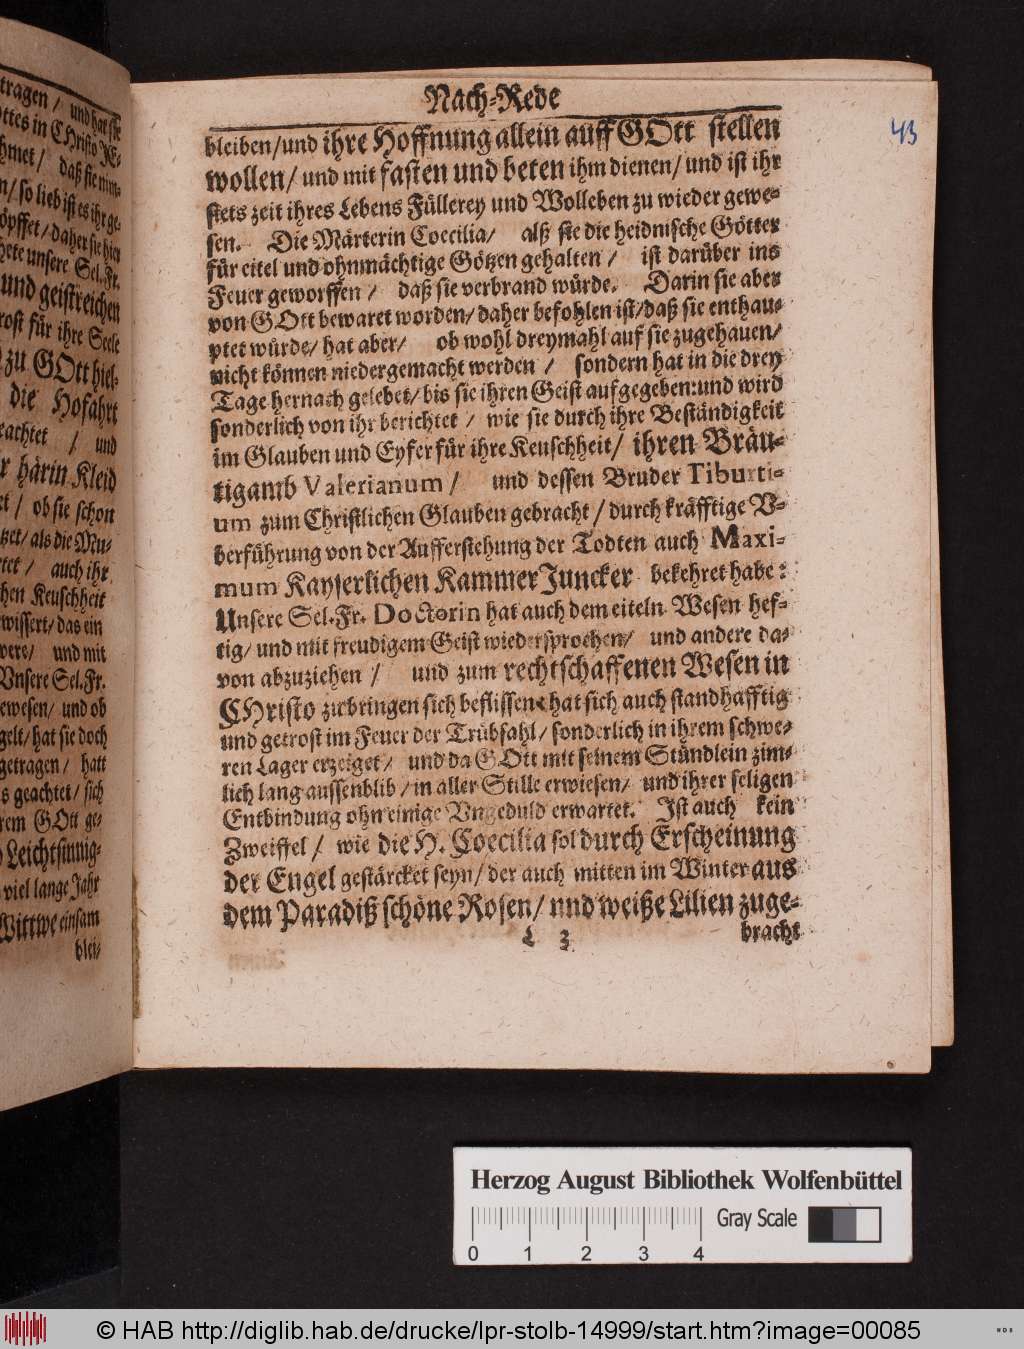 tragen / und hat sie
ottes in Christo JE-
hmet / daß sie nim-
n / so lieb ist es ihr ge-
öpffet / daher sie hier
hete unsere Sel. Fr.
und geistreichen
rost für ihre Seele
zu GOtt hiel-
die Hofahrt
eachtet / und
r härin Kleid
et / ob sie schon
tzet / als die Mu-
tet / auch ihr
hen Keuschheit
wissert / das ein
were / und mit
Vnsere Sel. Fr.
ewesen / und ob
gelt / hat sie doch
getragen / hatt
s geachtet / sich
rem GOtt ge-
Leichtsinnig-
viel lange Jahr
Wittwe einsam
blei-
Nach-Rede
43
bleiben / und ihre Hoffnung allein auff GOtt stellen
wollen / und mit fasten und beten ihm dienen / und ist ihr
stets zeit ihres Lebens Füllerey und Wolleben zu wieder gewe-
sen. Die Märterin Coecilia / alß sie die heidnische Götter
für eitel und ohnmächtige Götzen gehalten / ist darüber ins
Feuer geworffen / daß sie verbrand würde. Darin sie aber
von GOtt bewaret worden / daher befohlen ist / daß sie enthau-
ptet würde / hat aber / ob wohl dreymahl auf sie zugehauen /
nicht können niedergemacht werden / sondern hat in die drey
Tage hernach gelebet / bis sie ihren Geist aufgegeben: und wird
sonderlich von ihr berichtet / wie sie durch ihre Beständigkeit
im Glauben und Eyfer für ihre Keuschheit / ihren Bräu-
tigamb Valerianum / und dessen Bruder Tiburti-
um zum Christlichen Glauben gebracht / durch kräfftige V-
berführung von der Aufferstehung der Todten auch Maxi-
mum Kayserlichen Kammer Juncker bekehret habe:
Unsere Sel. Fr. Doctorin hat auch dem eiteln Wesen hef-
tig / und mit freudigem Geist wiedersprochen / und andere da-
von abzuziehen / und zum rechtschaffenen Wesen in
CHristo zubringen sich beflissen. hat sich auch standhafftig
und getrost im Feuer der Trübsahl / sonderlich in ihrem schwe-
ren Lager erzeiget / und da GOtt mit seinem Stündlein zim-
lich lang aussenblib / in aller Stille erwiesen / und ihrer seligen
Entbindung ohn einige Vngeduld erwartet. Jst auch kein
Zweiffel / wie die H. Coecilia sol durch Erscheinung
der Engel gestärcket seyn / der auch mitten im Winter aus
dem Paradiß schöne Rosen / und weiße Lilien zuge-
L 3
bracht
Herzog August Bibliothek Wolfenbüttel
Gray Scale
0 1 2 3 4
© HAB http://diglib.hab.de/drucke/lpr-stolb-14999/start.htm?image=00085